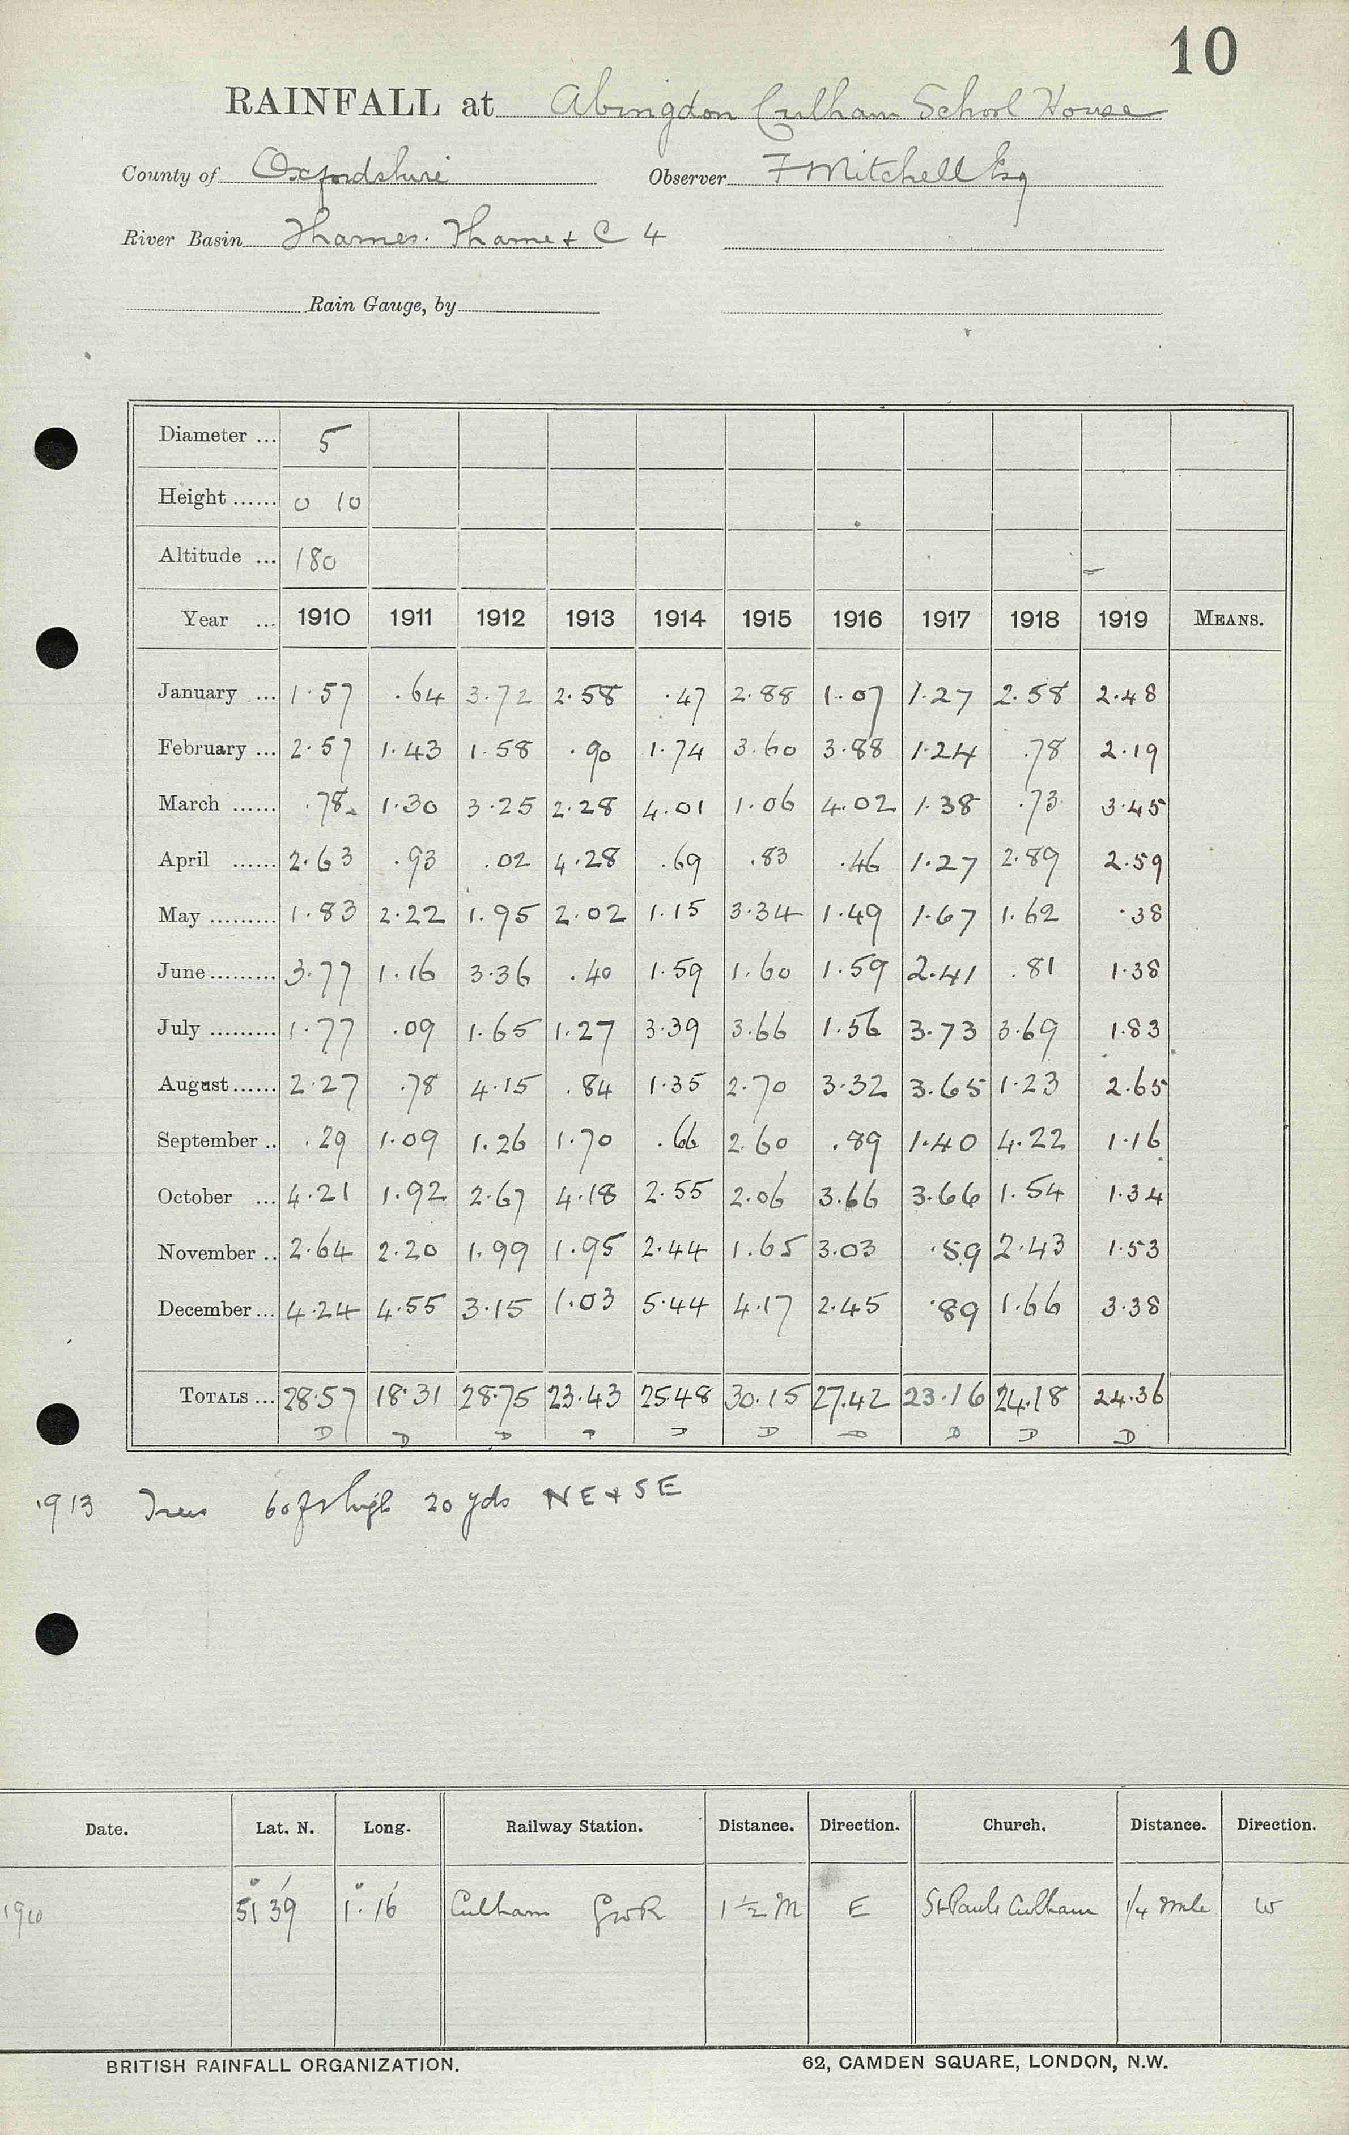 10
RAINFALL at Abingdon Culham School House
County of Oxfordshire Observer F Mitchell Esq
River Basin Thames. Thame + C 4
Rain Gauge, by
Diameter ... 5
Height ...... 0 10
Altitude ... 180
Year ... 1910 1911 1912 1913 1914 1915 1916 1917 1918 1919 MEANS.
January ... 1.57 .64 3.72 2.58 .47 2.88 1.07 1.27 2.58 2.48
February ... 2.57 1.43 1.58 .90 1.74 3.60 3.88 1.24 .78 2.19
March ...... .78 1.30 3.25 2.28 4.01 1.06 4.02 1.38 .73 3.45
April ...... 2.63 .93 .02 4.28 .69 .83 .46 1.27 2.89 2.59
May ......... 1.83 2.22 1.95 2.02 1.15 3.34 1.49 1.67 1.62 .38
June ......... 3.77 1.16 3.36 .40 1.59 1.60 1.59 2.41 .81 1.38
July ......... 1.77 .09 1.65 1.27 3.39 3.66 1.56 3.73 3.69 1.83
August ...... 2.27 .78 4.15 .84 1.35 2.70 3.32 3.65 1.23 2.65
September .. .29 1.09 1.26 1.70 .66 2.60 .89 1.40 4.22 1.16
October ... 4.21 1.92 2.67 4.18 2.55 2.06 3.66 3.66 1.54 1.34
November .. 2.64 2.20 1.99 1.95 2.44 1.65 3.03 .59 2.43 1.53
December ... 4.24 4.55 3.15 1.03 5.44 4.17 2.45 .89 1.66 3.38
TOTALS ... 28.57 18.31 28.75 23.43 25.48 30.15 27.42 23.16 24.18 24.36
D D D D D D D D D D
1913 Trees 60 ft high 20 yds NE + SE
Date. Lat. N. Long. Railway Station. Distance. Direction. Church. Distance. Direction.
1910 51° 39' 1° 16' Culham GWR 1½ M E St Pauls Culham 1/4 mile W
BRITISH RAINFALL ORGANIZATION. 62, CAMDEN SQUARE, LONDON, N.W.